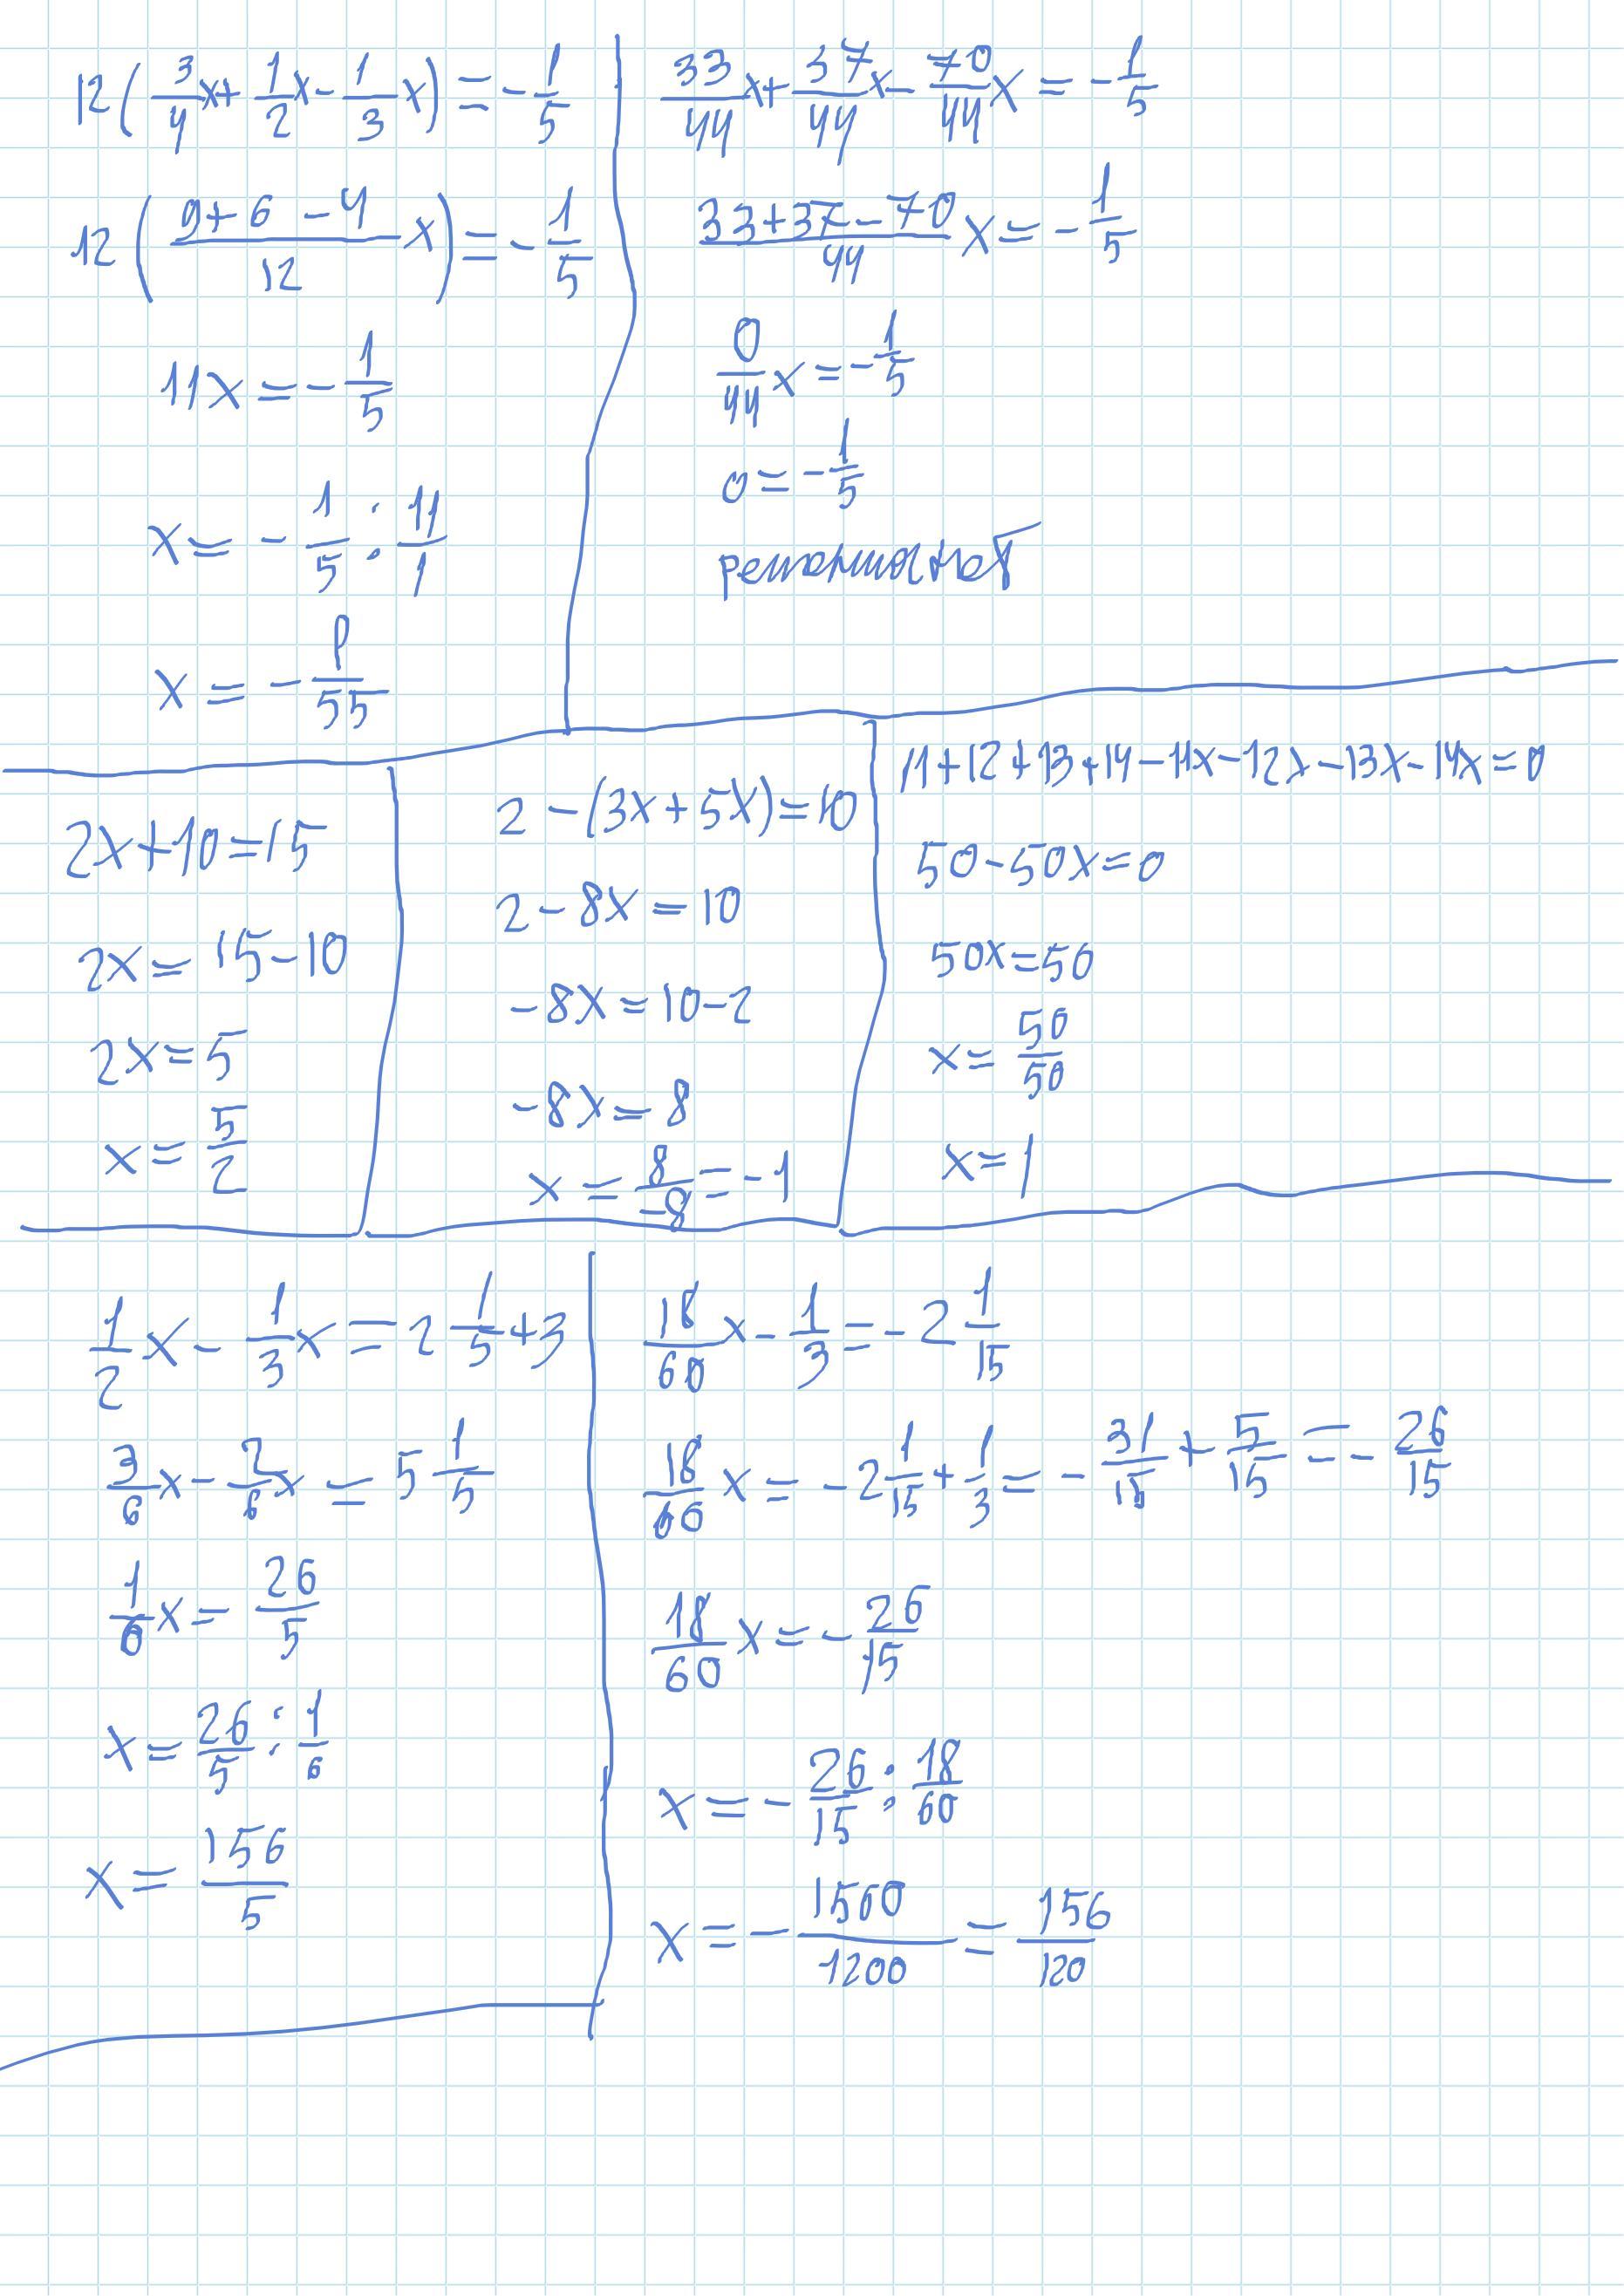 12(3/4x + 1/2x - 1/3x) = -1/5
12((9+6-4)/12 x) = -1/5
11x = -1/5
x = -1/5 : 11/1
x = -1/55
33/44x + 37/44x - 70/44x = -1/5
(33+37-70)/44 x = -1/5
0/44x = -1/5
0 = -1/5
решений нет
2x+10=15
2x=15-10
2x=5
x=5/2
2-(3x+5x)=10
2-8x=10
-8x=10-2
-8x=8
x=8/-8=-1
11+12+13+14-11x-12x-13x-14x=0
50-50x=0
50x=50
x=50/50
x=1
1/2x - 1/3x = 2 1/5 + 3
3/6x - 2/6x = 5 1/5
1/6x = 26/5
x = 26/5 : 1/6
x = 156/5
18/60x - 1/3 = -2 1/15
18/60x = -2 1/15 + 1/3 = -31/15 + 5/15 = -26/15
18/60x = -26/15
x = -26/15 : 18/60
x = -1560/1200 = 156/120